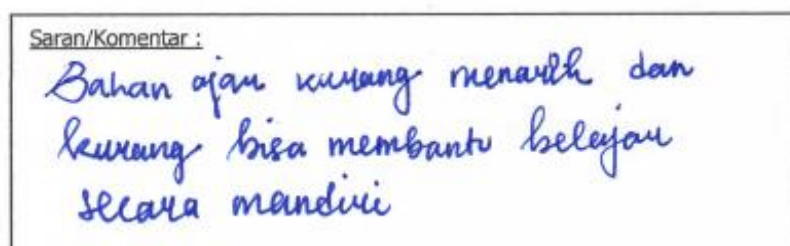 Saran/Komentar :
Bahan ajar kurang menarik dan
kurang bisa membantu belajar
secara mandiri